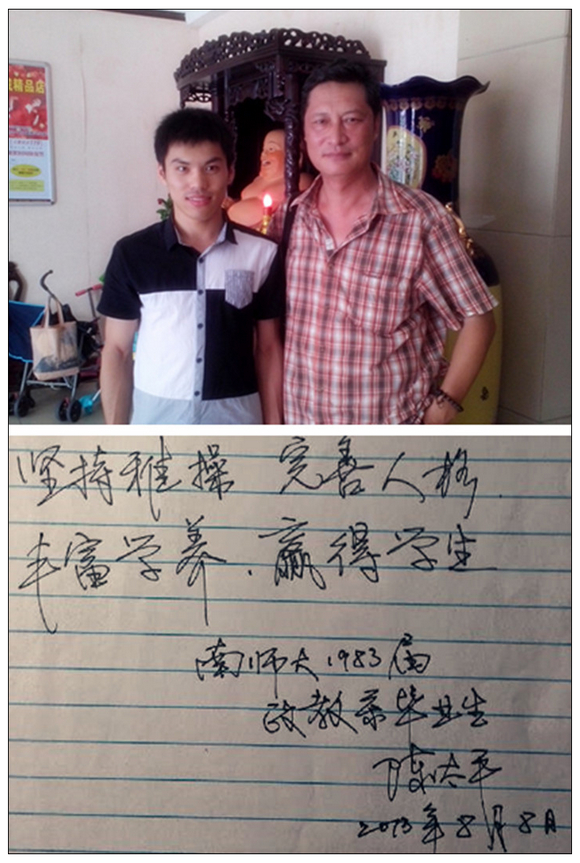 精品店
坚持雅操 完善人格.
丰富学养.赢得学生
南师大1983届
政教系毕业生
陈太平
2013年8月8日